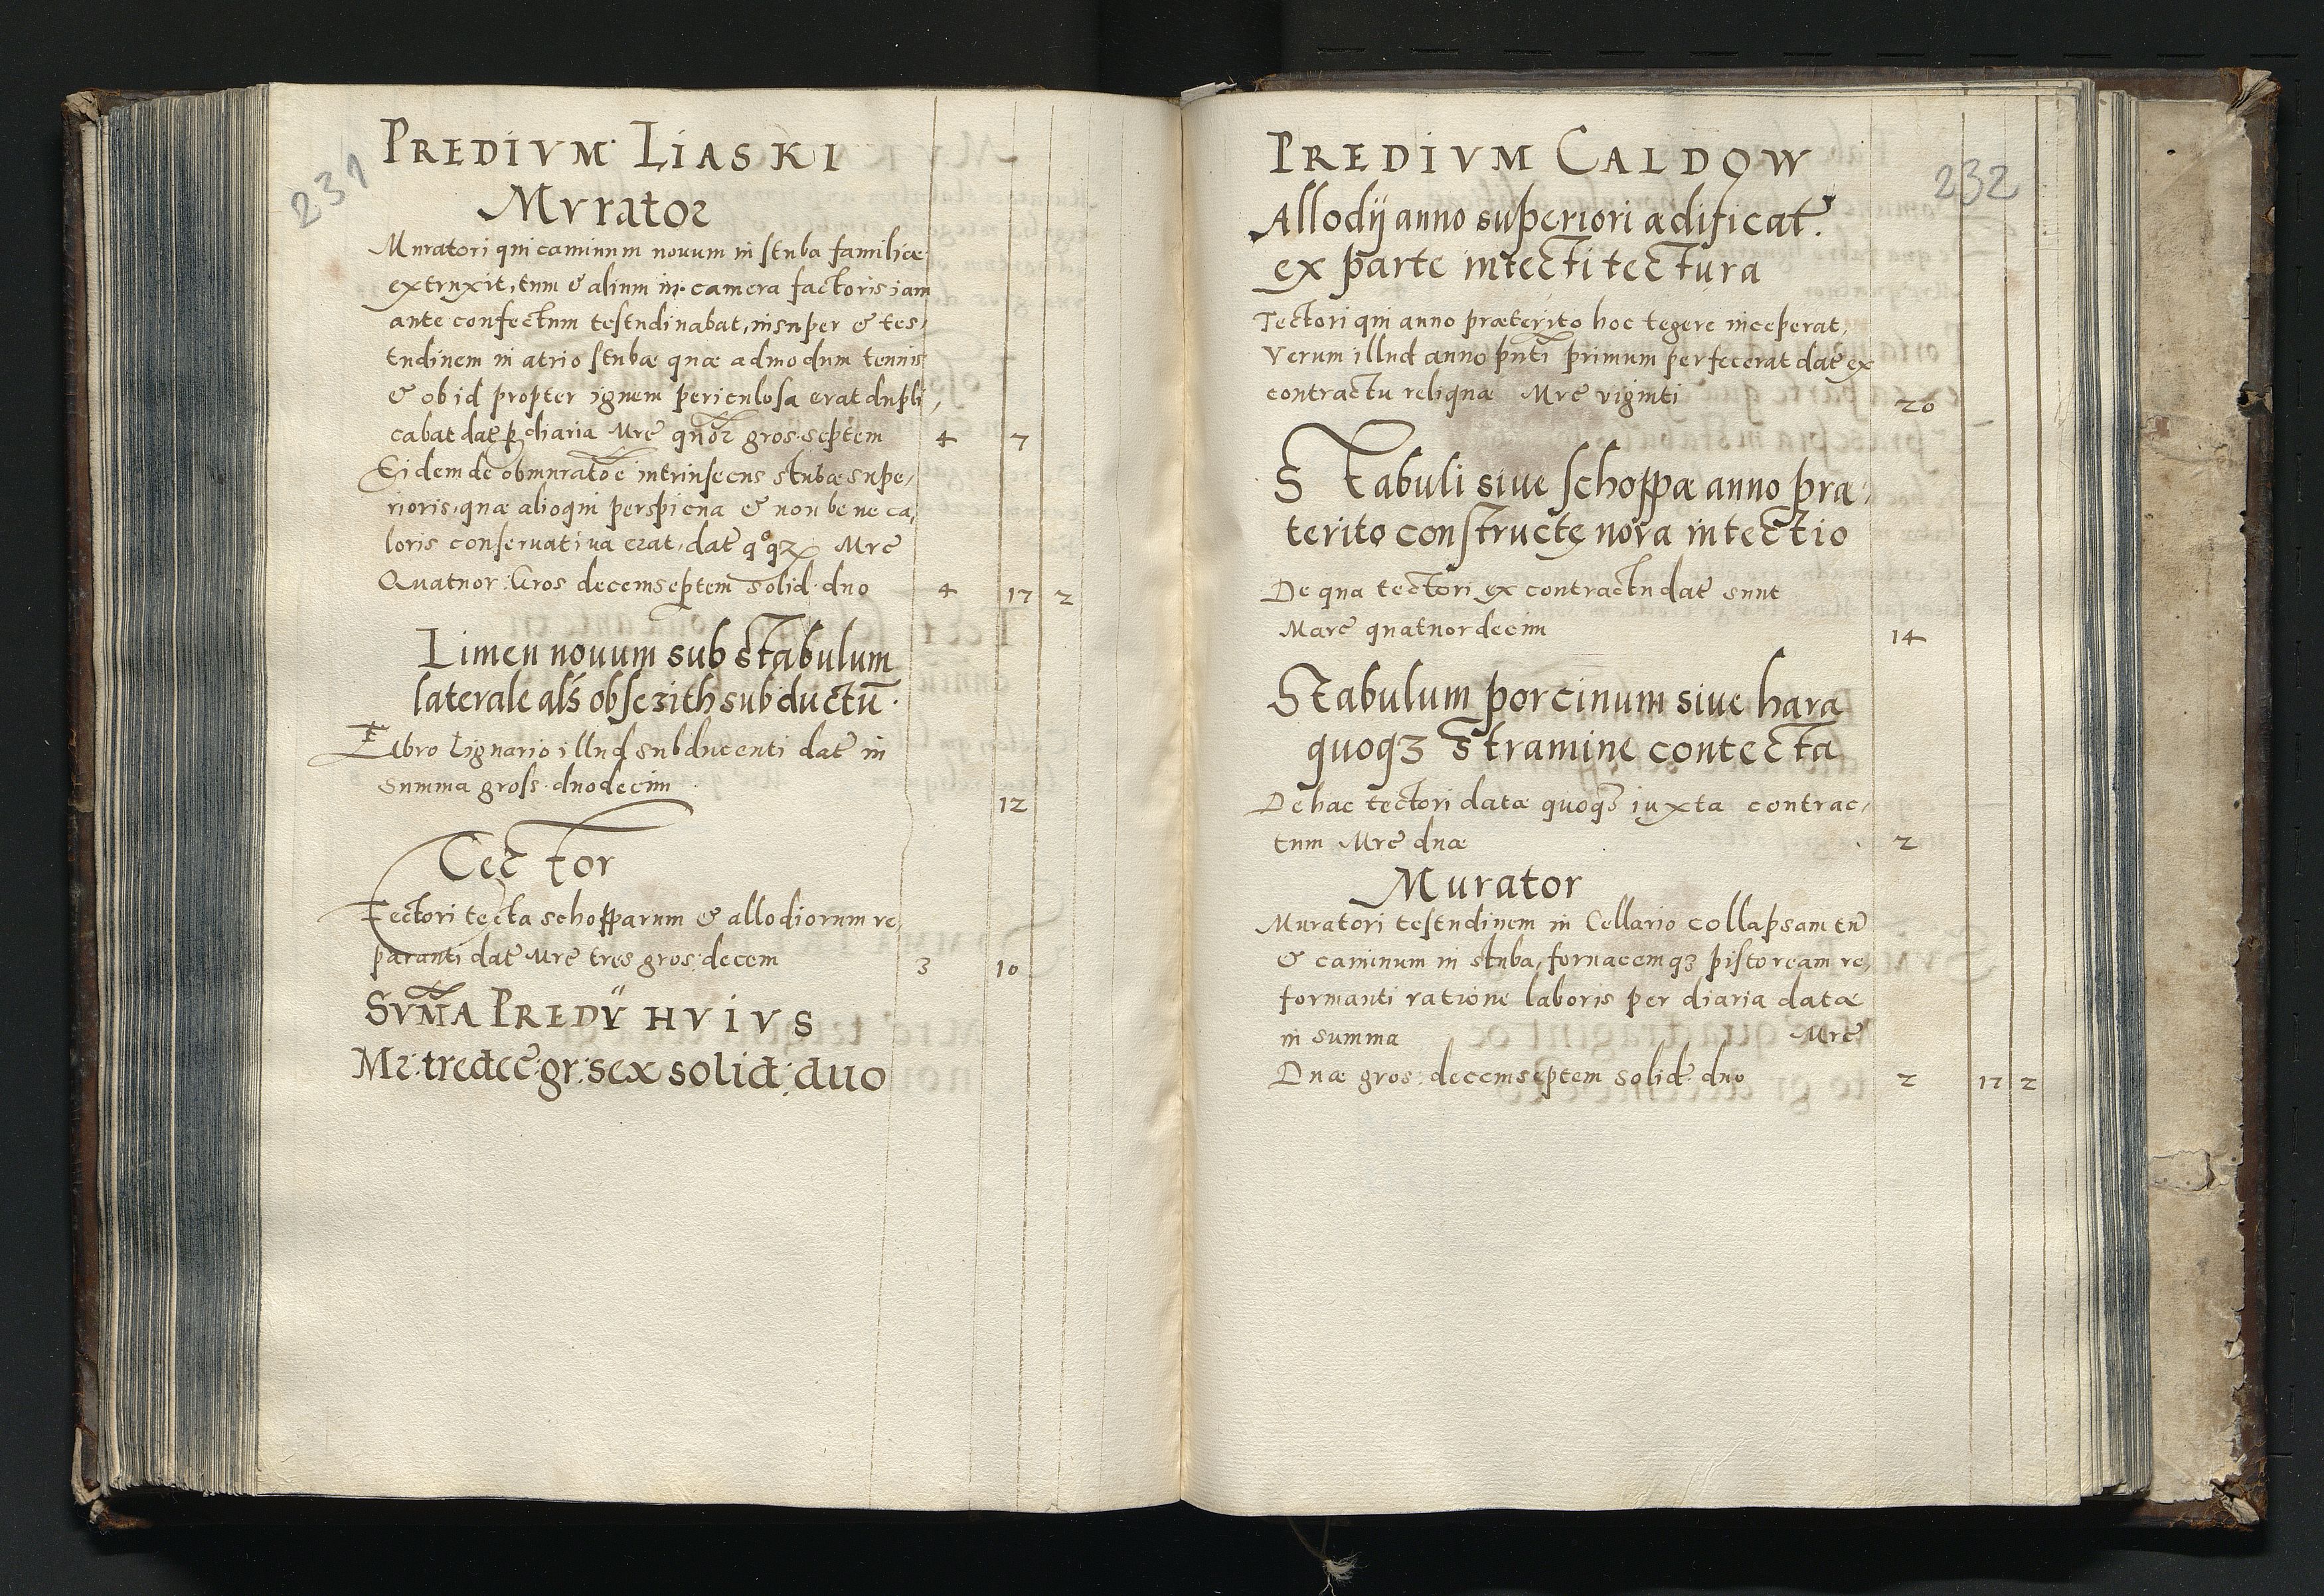 231
PREDIVM LIASKI
Mvrator
Muratori qui caminum nouum in stuba familiæ
extruxit, tum & alium in camera factoris iam
ante confectum testudinabat, insuper & tes,
tudinem in atrio stubæ quæ admodum tenuis
& ob id propter ignem periculosa erat dupli,
cabat dat̃ ꝑ diaria Mrc̃ quõr gros septem 4 7
Eidem de obmuratõe intrinsecus stubæ supe,
rioris, quæ alioqui perspicua & non bene ca,
loris conseruatiua erat, dat̃ Mrc̃
Quatuor: Gros decemseptem solid. duo 4 17 2
Limen nouum sub stabulum
laterale als̃ obserith subductũ.
Fabro lignario illud subducenti dat̃ in
summa gross. duodecim 12
Tector
Tectori tecta schopparum & allodiorum re,
paranti dat̃ Mrc̃ tres gros: decem 3 10
SVM̃A PREDŸ HVIVS
Mr: tredec̃: gr: sex solid: duo
232
PREDIVM CALDOW
Allodij anno superiori ædificat̃.
ex parte intecti tectura
Tectori qui anno præterito hoc tegere inceperat,
Verum illud anno pñti primum perfecerat dat̃ ex
contractu reliquæ Mrc̃ viginti 20
Stabuli siue schoppæ anno præ,
terito constructę nova intectio
De qua tectori ex contractu dat̃ sunt
Marc̃ quatuordecim 14
Stabulum porcinum siue hara
quoqꝫ stramine contecta
De hac tectori datæ quoqꝫ iuxta contrac,
tum Mrc̃ duæ 2
Murator
Muratori testudinem in Cellario collapsam tũ
& caminum in stuba, fornacemqꝫ pistoream re,
formanti ratione laboris per diaria datæ
in summa Mrc̃
Duæ gros: decemseptem solid: duo 2 17 2